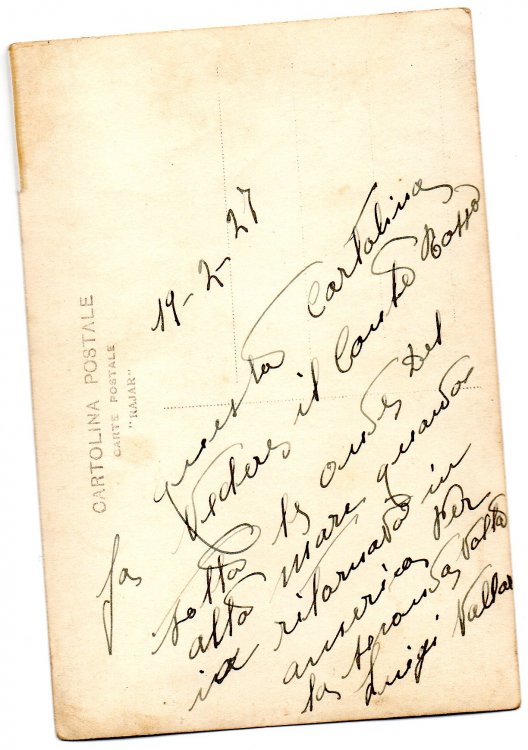 CARTOLINA POSTALE
CARTE POSTALE
"RAJAR"
19-2-27
questa Cartolina
fa Vedere il Conte Rosso
sotto le onde del
alto mare quando
io ritornavo in
america per
la seconda Volta
Luigi